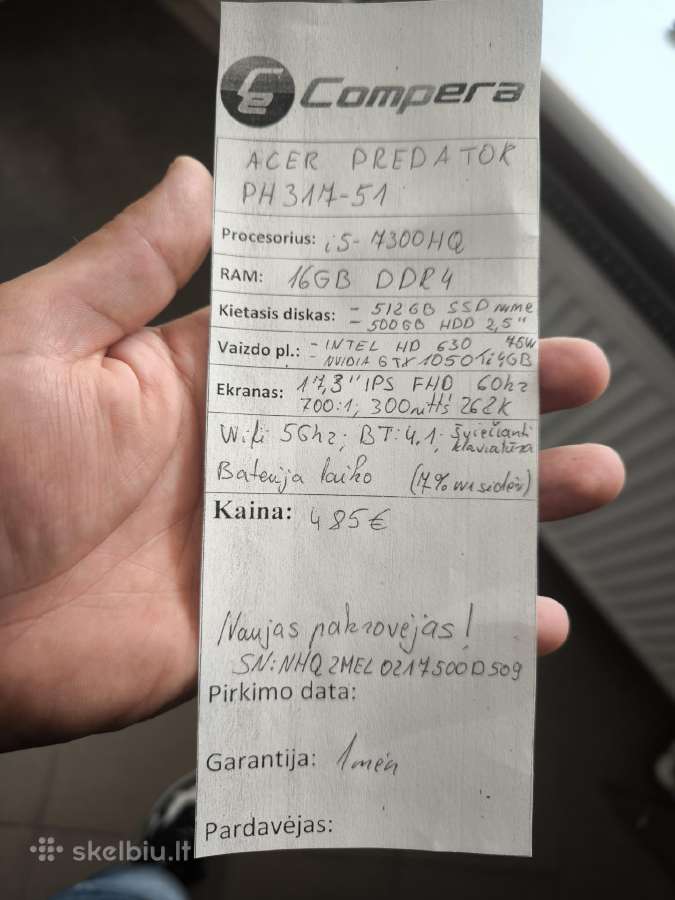 Compera
ACER PREDATOR
PH317-51
Procesorius: i5-7300HQ
RAM: 16GB DDR4
Kietasis diskas: - 512GB SSD nvme
- 500GB HDD 2,5"
Vaizdo pl.: - INTEL HD 630 75W
- NVIDIA GTX 1050Ti 4GB
Ekranas: 17,3" IPS FHD 60hz
700:1; 300nitts 262K
Wifi 5Ghz; BT: 4,1; šviečianti
klaviatūra
Baterija laiko (17%
Kaina: 485€
Naujas pakrovėjas!
SN: NHQ2MEL0217500D509
Pirkimo data:
Garantija: 1 mėn
Pardavėjas:
skelbiu.lt